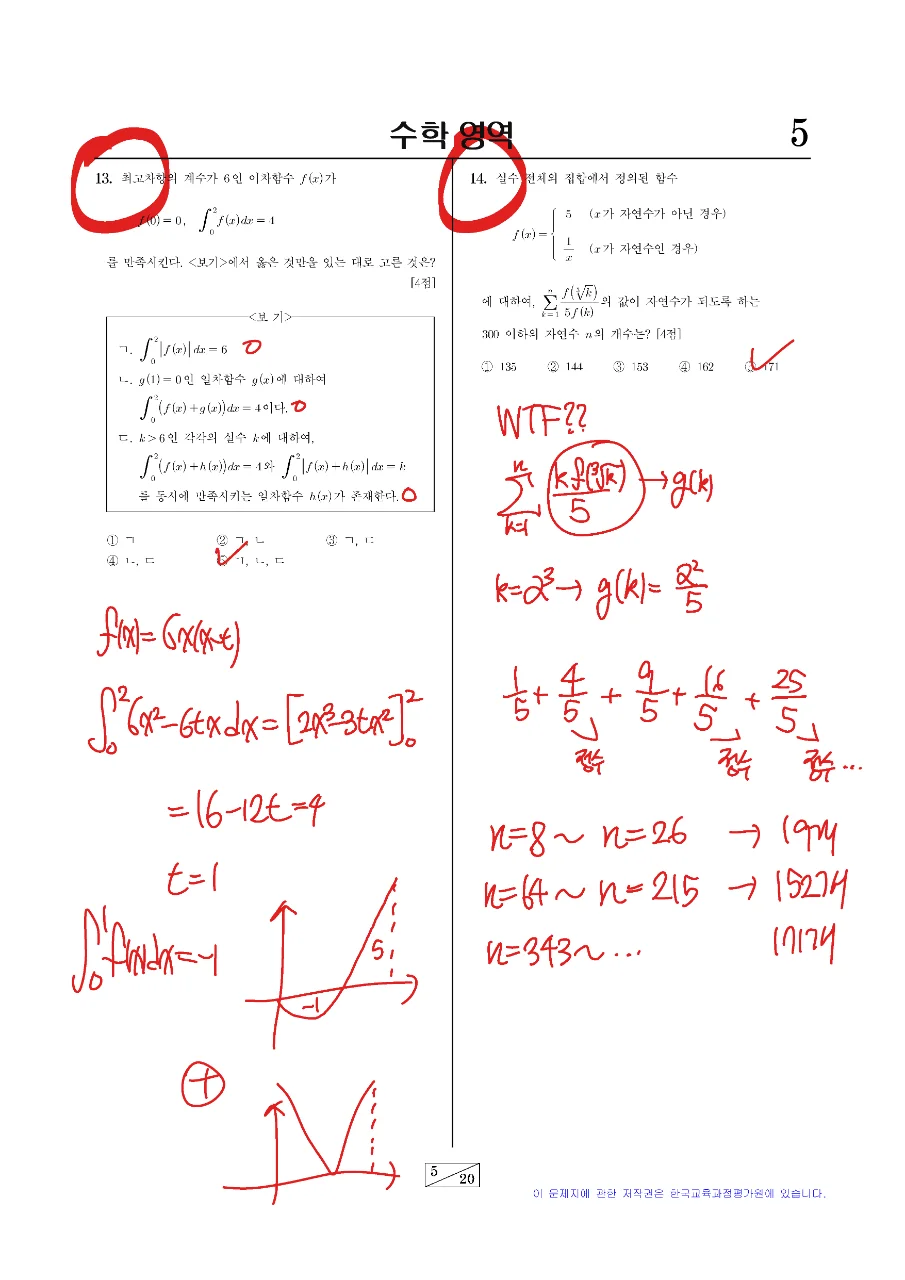 수학 영역
5
13. 최고차항의 계수가 6인 이차함수 f(x)가
f(0)=0, ∫₀² f(x)dx=4
를 만족시킨다. <보기>에서 옳은 것만을 있는 대로 고른 것은?
[4점]
<보 기>
ㄱ. ∫₀² |f(x)|dx=6 O
ㄴ. g(1)=0인 일차함수 g(x)에 대하여
∫₀² (f(x)+g(x))dx=4이다. O
ㄷ. k>6인 각각의 실수 k에 대하여,
∫₀² (f(x)+h(x))dx=4와 ∫₀² |f(x)+h(x)|dx=k
를 동시에 만족시키는 일차함수 h(x)가 존재한다. O
① ㄱ ② ㄱ, ㄴ ③ ㄱ, ㄷ
④ ㄴ, ㄷ ⑤ ㄱ, ㄴ, ㄷ
f(x)=6x(x-t)
∫₀² 6x²-6tx dx=[2x³-3tx²]₀²
=16-12t=4
t=1
∫₀¹ f(x)dx=-1
5
-1
+
14. 실수 전체의 집합에서 정의된 함수
f(x)={ 5 (x가 자연수가 아닌 경우)
1/x (x가 자연수인 경우)
에 대하여, ∑ₖ₌₁ⁿ f(∛k)/5f(k)의 값이 자연수가 되도록 하는
300 이하의 자연수 n의 개수는? [4점]
① 135 ② 144 ③ 153 ④ 162 ⑤ 171
WTF??
∑ₖ₌₁ⁿ kf(∛k)/5 → g(k)
k=2³ → g(k)=2²/5
1/5+4/5+9/5+16/5+25/5
정수 정수 정수 ...
n=8 ~ n=26 → 19개
n=64 ~ n=215 → 152개
n=343 ~ ... 171개
5
20
이 문제지에 관한 저작권은 한국교육과정평가원에 있습니다.